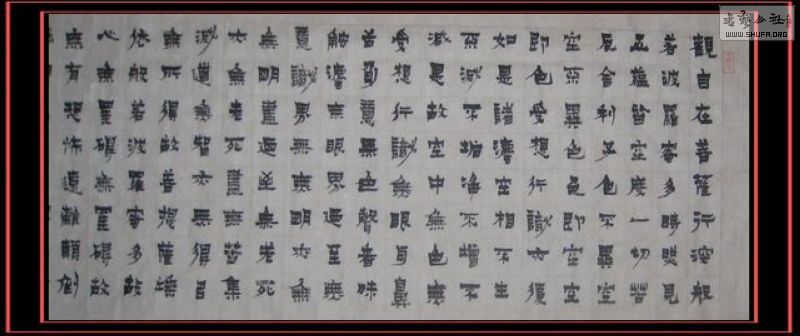 觀自在菩薩行深般
若波羅蜜多時照見
五蘊皆空度一切苦
厄舍利子色不異空
空不異色色即是空
即色受想行識亦復
如是諸法空相不生
不滅不垢淨不增不
減是故空中無色無
受想行識無眼耳鼻
舌身意無色聲香味
觸法無眼界乃至無
意識界無無明亦無
無明盡乃至無老死
亦無老死盡無苦集
滅道無智亦無得以
無所得故菩提薩埵
依般若波羅蜜多故
心無罣礙無罣礙故
無有恐怖遠離顛倒
书法公社
WWW.SHUFA.ORG